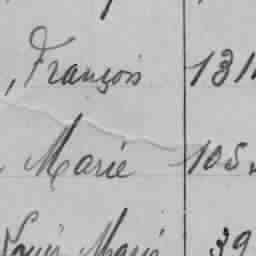 , François 131
Marie 105.
Louis Marie 39